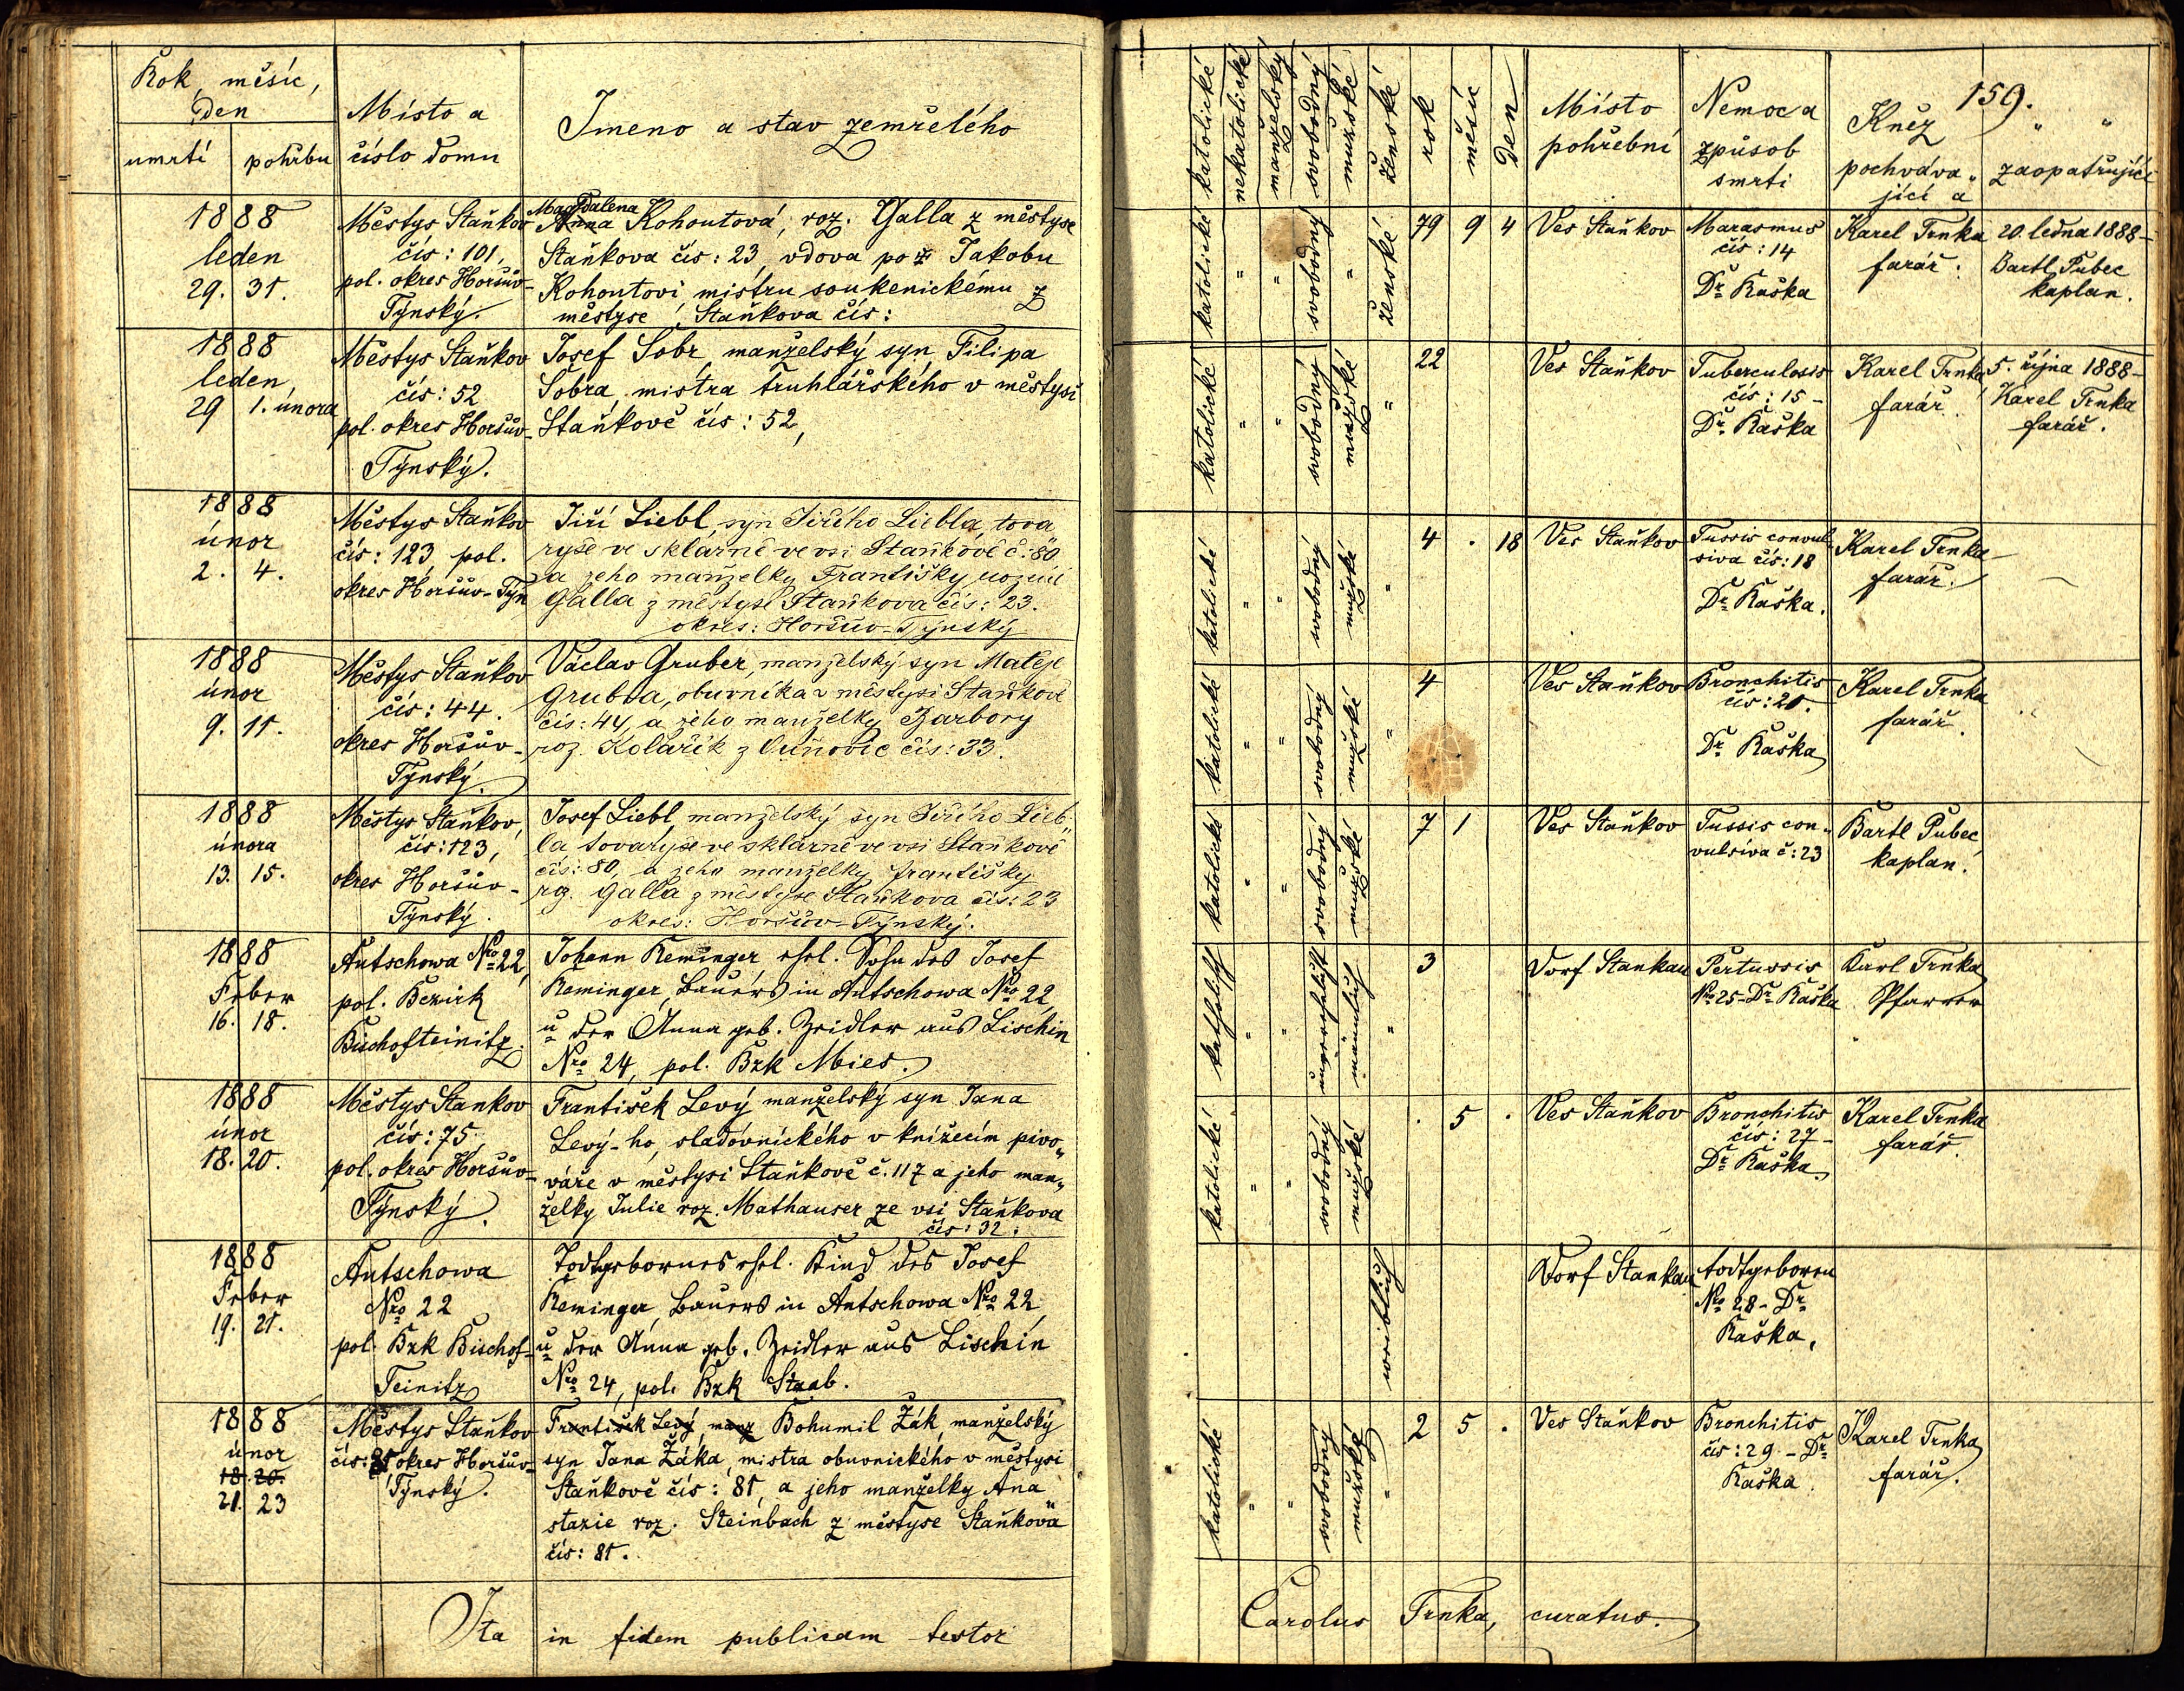 Rok, měsíc,
den
umrtí pohřbu
Místo a
číslo domu
Jmeno a stav zemřelého
1888
leden
29. 31.
Městys Staňkov
čís: 101,
pol. okres Horšův-
Týnský.
Magdalena
Anna Kohoutová, roz. Galla z městyse
Staňkova čís: 23, vdova po ž Jakobu
Kohoutovi mistru soukenickému z
městyse Staňkova čís:
1888
leden,
29 1. února
Městys Staňkov
čís: 52
pol. okres Horšův-
Týnský.
Josef Sobr, manželský syn Filipa
Sobra, mistra truhlářského v městysi
Staňkově čís: 52,
1888
únor
2. 4.
Městys Staňkov
čís: 123, pol.
okres Horšův-Týn
Jiří Liebl, syn Jiřího Liebla, tova
ryše ve sklárně ve vsi Staňkově č: 80
a jeho manželky Františky, rozené
Galla z městyse Staňkova čís: 23.
okres: Horšův-Týnský
1888
únor
9. 11.
Městys Staňkov
čís: 44.
okres Horšův-
Týnský.
Václav Gruber, manželský syn Matěje
Grubra, obuvníka v městysi Staňkově
čís: 44, a jeho manželky Barbory
roz. Kolařík z Ouňovic čís: 33.
1888
února
13. 15.
Městys Staňkov,
čís: 123,
okres Horšův-
Týnský.
Josef Liebl, manželský syn Jiřího Lieb„
la tovaryše ve sklárně ve vsi Staňkově
čís: 80, a jeho manželky Františky
roz. Galla z městyse Staňkova čís: 23
okres: Horšův-Týnský.
1888
Feber
16. 18.
Autschowa Nro 22,
pol. Bezirk
Bischofteinitz.
Johann Reminger ehel. Sohn des Josef
Reminger, Bauers in Autschowa Nro 22,
u der Anna geb. Zeidler aus Lischin
Nro 24, pol. Bzk Mies.
1888
únor
18. 20.
Městys Stankov
čís: 75,
pol. okres Horšův-
Týnský.
František Levý manželský syn Jana
Levý-ho, sladovnického v knížecím pivo„
váře v městysi Staňkově č. 117 a jeho man„
želky Julie roz. Mathauser ze vsi Staňkova
čís: 32.
1888
Feber
19. 21.
Autschowa
Nro 22
pol. Bzk Bischof-
Teinitz
Todtgebornes ehel. Kind des Josef
Reminger, Bauers in Autschowa Nro 22,
u der Anna geb. Zeidler aus Lischin
Nro 24, pol. Bzk Staab.
1888
únor
18. 20.
21. 23
Městys Staňkov
čís: 81 okres Horšův-
Týnský.
František Levý, manž Bohumil Žák, manželský
syn Jana Žáka, mistra obuvnického v městysi
Staňkově čís: 81, a jeho manželky Ana
stazie roz. Steinbach z městyse Staňkova
čís: 81.
Ita in fidem publicam testor
katolické
nekatolické
manželský
svobodný
mužské
ženské
rok
měsíc
den
Místo
pohřební
Nemoc a
způsob
smrti
159.
Kněz „ „
pochováva„ zaopatřující
jící a
katolické „ „ svobodný „ ženské
79 9 4
Ves Staňkov
Marasmus
čís: 14
Dr. Raška
Karel Trnka
farář.
20. ledna 1888-
Bartl. Pubec
kaplan.
katolické „ „ svobodný mužské „
22
Ves Staňkov
Tuberculosis
čís: 15-
Dr. Raška
Karel Trnka
farář.
5. října 1888-
Karel Trnka
farář.
katolické „ „ svobodný mužské „
4 . 18
Ves Staňkov
Tussis convul-
siva čís: 18
Dr. Raška.
Karel Trnka
farář.
katolické „ „ svobodný mužské „
4
Ves Staňkov
Bronchitis
čís: 21.
Dr. Raška
Karel Trnka
farář.
katolické „ „ svobodný mužské
7 1
Ves Staňkov
Tussis con„
vulsiva č: 23
Bartl Pubec
kaplan.
katholisch „ „ unverehelicht männlich „
3
Dorf Stankau
Pertussis
Nro 25-Dr. Raška
Karl Trnka
Pfarrer
katolické „ „ svobodný mužské
. 5 .
Ves Staňkov
Bronchitis
čís: 27-
Dr. Raška
Karel Trnka
farář.
weiblich
Dorf Stankau
todtgeboren
Nro 28- Dr.
Raška.
katolické „ „ svobodný mužské „
2 5 .
Ves Staňkov
Bronchitis
čís: 29.- Dr.
Raška.
Karel Trnka
farář.
Carolus Trnka, curatus.